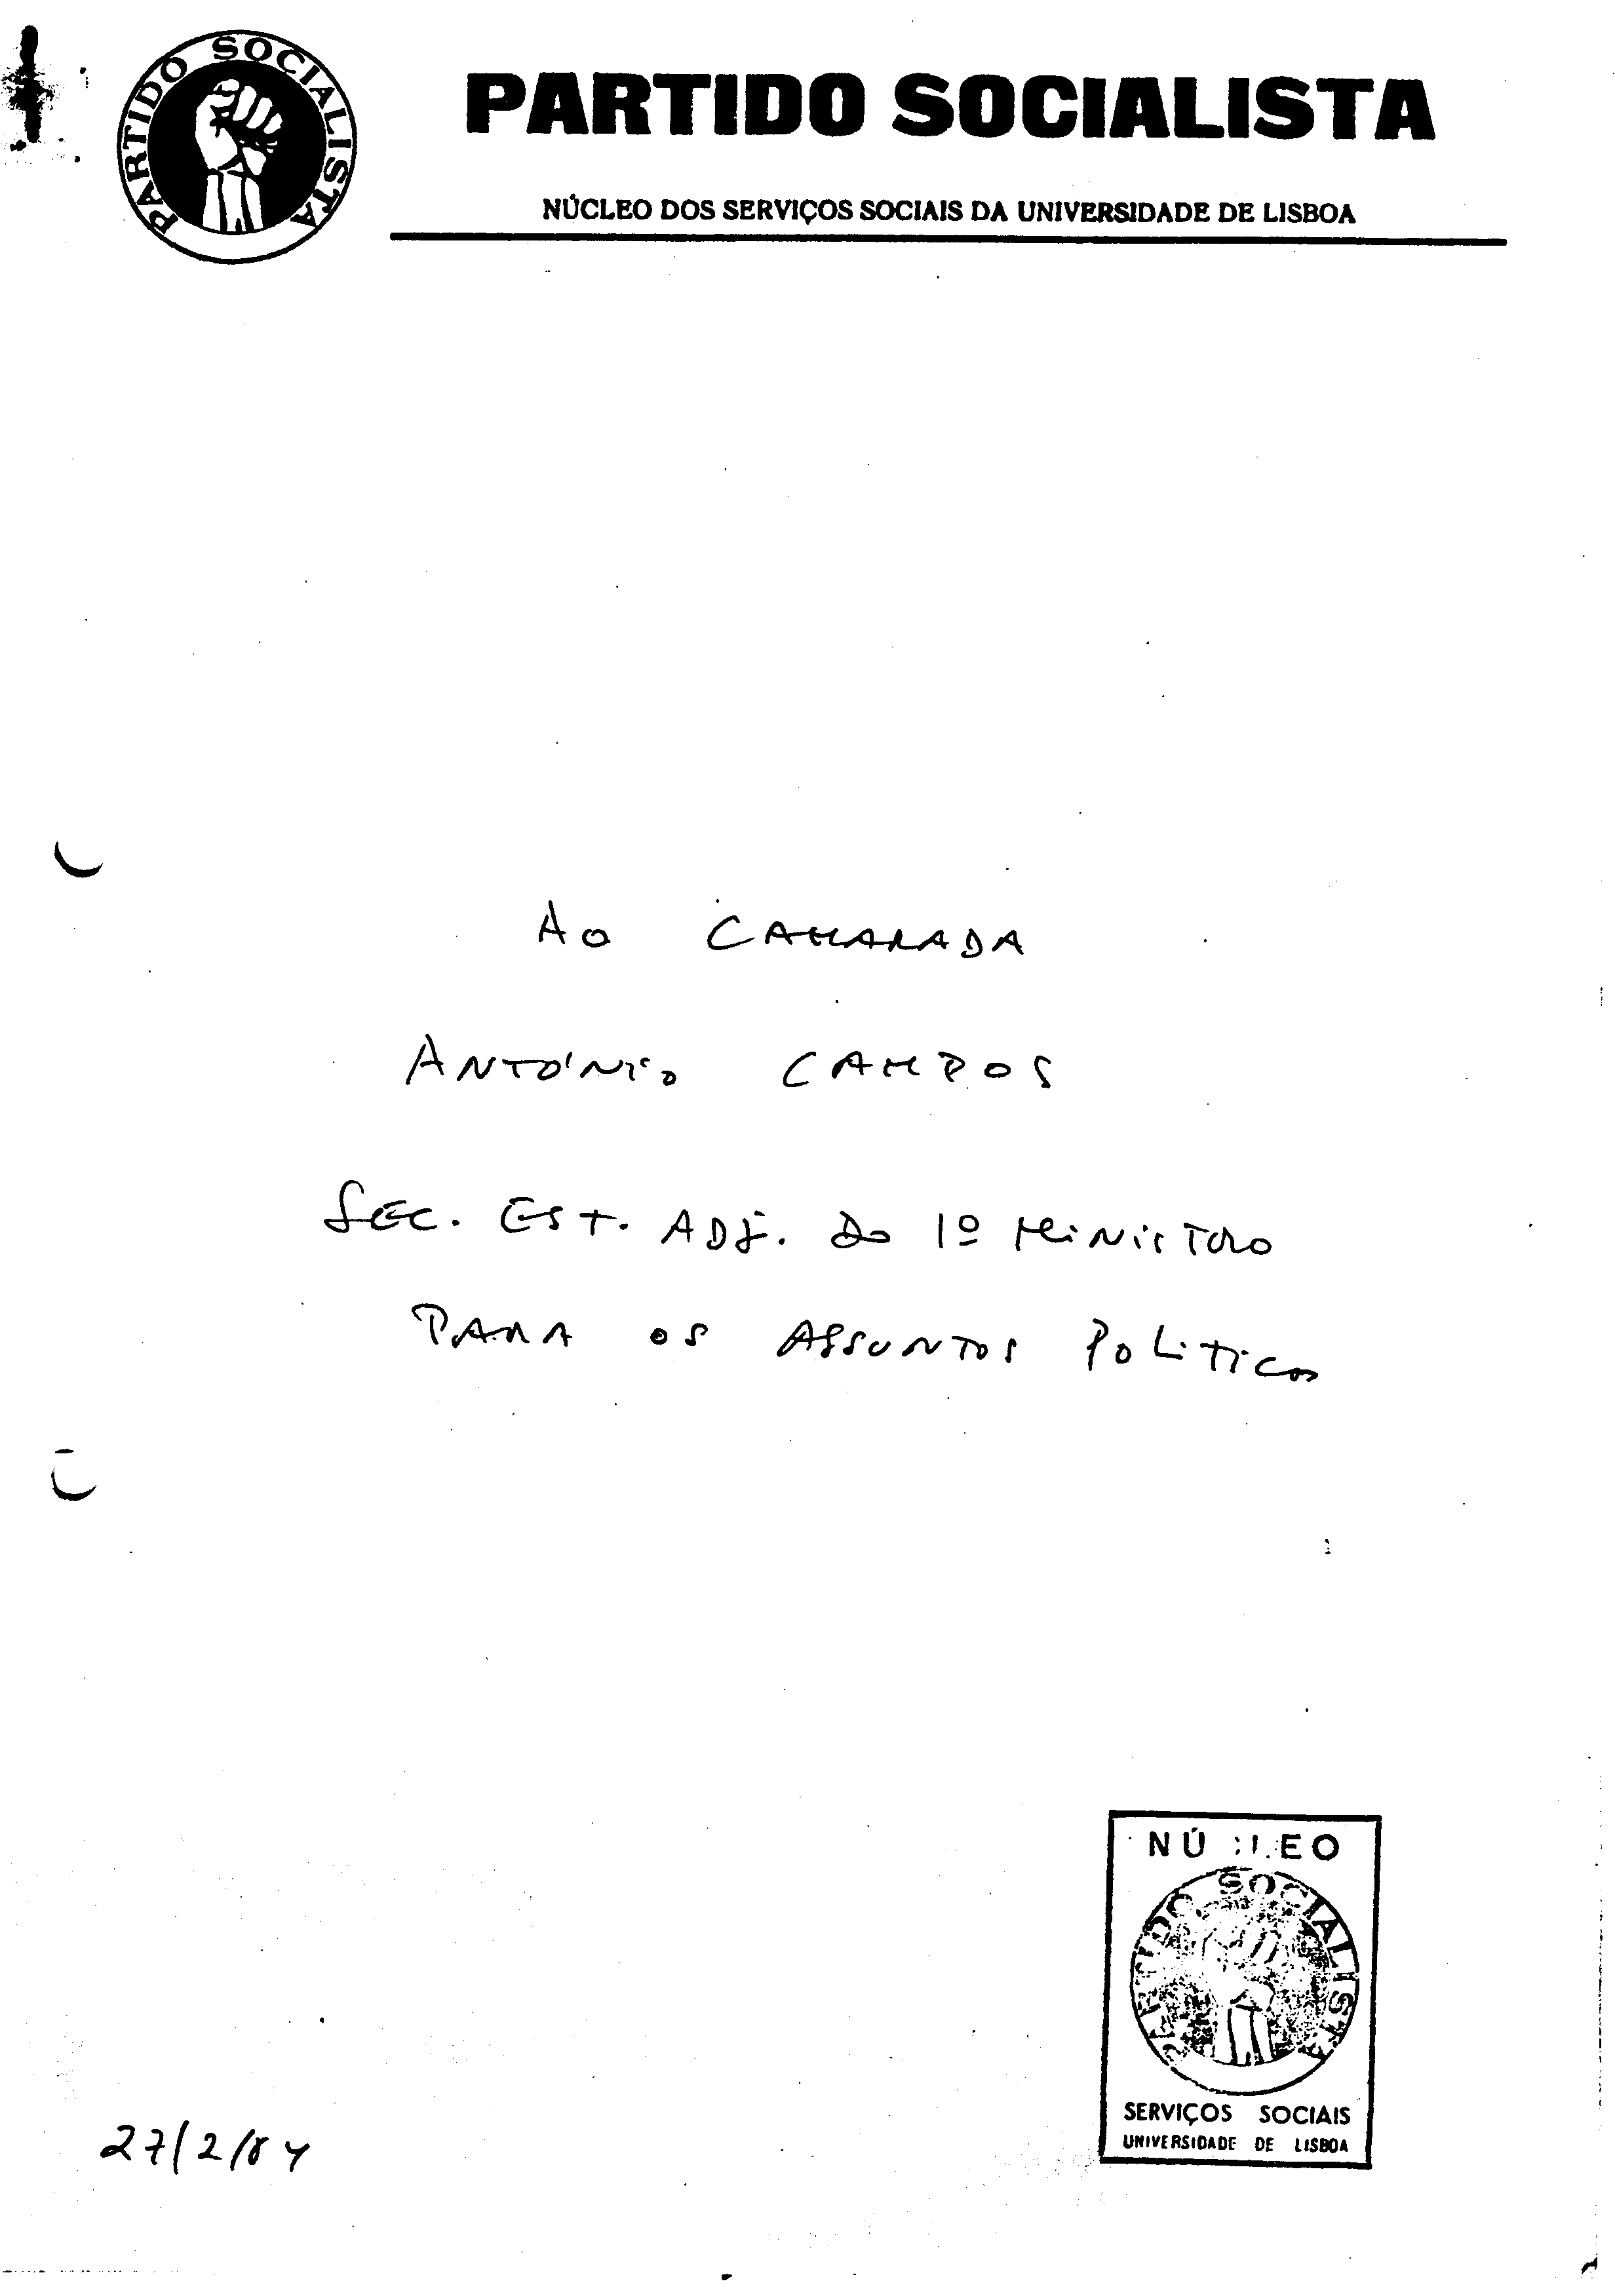 PARTIDO SOCIALISTA
PARTIDO SOCIALISTA
NÚCLEO DOS SERVIÇOS SOCIAIS DA UNIVERSIDADE DE LISBOA
AO CAMARADA
ANTÓNIO CAMPOS
SEC. EST. ADJ. DO 1º MINISTRO
PARA OS ASSUNTOS POLITICOS
NÚCLEO
PARTIDO SOCIALISTA
SERVIÇOS SOCIAIS
UNIVERSIDADE DE LISBOA
27/2/84